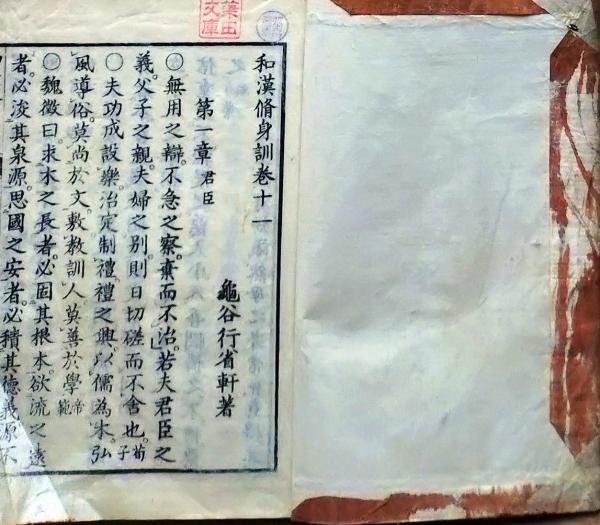 和漢脩身訓卷十一
龜谷行省軒著
第一章 君臣
〇無用之辯。不急之察。棄而不治。若夫君臣之
義。父子之親。夫婦之別。則日切磋而不舍也。荀子
〇夫功成設樂。治定制禮。禮之興。以儒為本。弘
風導俗。莫尚於文。敷教訓人。莫善於學。帝範
〇魏徵曰。求木之長者。必固其根本。欲流之遠
者。必浚其泉源。思國之安者。必積其德義。源不
田
文庫